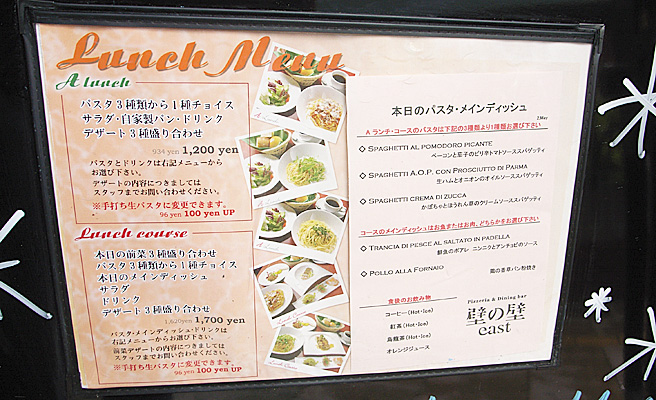 Lunch Menu
A lunch
パスタ3種類から1種チョイス
サラダ・自家製パン・ドリンク
デザート3種盛り合わせ
934 yen 1,200 yen
パスタとドリンクは右記メニューから
お選び下さい。
デザートの内容につきましては
スタッフまでお問い合わせください。
※手打ち生パスタに変更できます。
96 yen 100 yen UP
Lunch course
本日の前菜3種盛り合わせ
パスタ3種類から1種チョイス
本日のメインディッシュ
サラダ
ドリンク
デザート3種盛り合わせ
1,620yen 1,700 yen
パスタ・メインディッシュ・ドリンクは
右記メニューからお選び下さい。
前菜デザートの内容につきましては
スタッフまでお問い合わせください。
※手打ち生パスタに変更できます。
96 yen 100 yen UP
本日のパスタ・メインディッシュ
Aランチ・コースのパスタは下記の3種類より1種類お選び下さい
◇ SPAGHETTI AL POMODORO PICANTE
ベーコンと茄子のピリ辛トマトソーススパゲッティ
◇ SPAGHETTI A.O.P. CON PROSCIUTTO DI PARMA
生ハムとオニオンのオイルソーススパゲッティ
◇ SPAGHETTI CREMA DI ZUCCA
かぼちゃとほうれん草のクリームソーススパゲッティ
コースのメインディッシュはお魚またはお肉、どちらかをお選び下さい
◇ TRANCIA DI PESCE AL SALTATO IN PADELLA
鮮魚のポアレ ニンニクとアンチョビのソース
◇ POLLO ALLA FORNAIO
鶏の香草パン粉焼き
食後のお飲み物
コーヒー(Hot・Ice)
紅茶(Hot・Ice)
烏龍茶(Hot・Ice)
オレンジジュース
Pizzeria & Dining bar
壁の壁
east